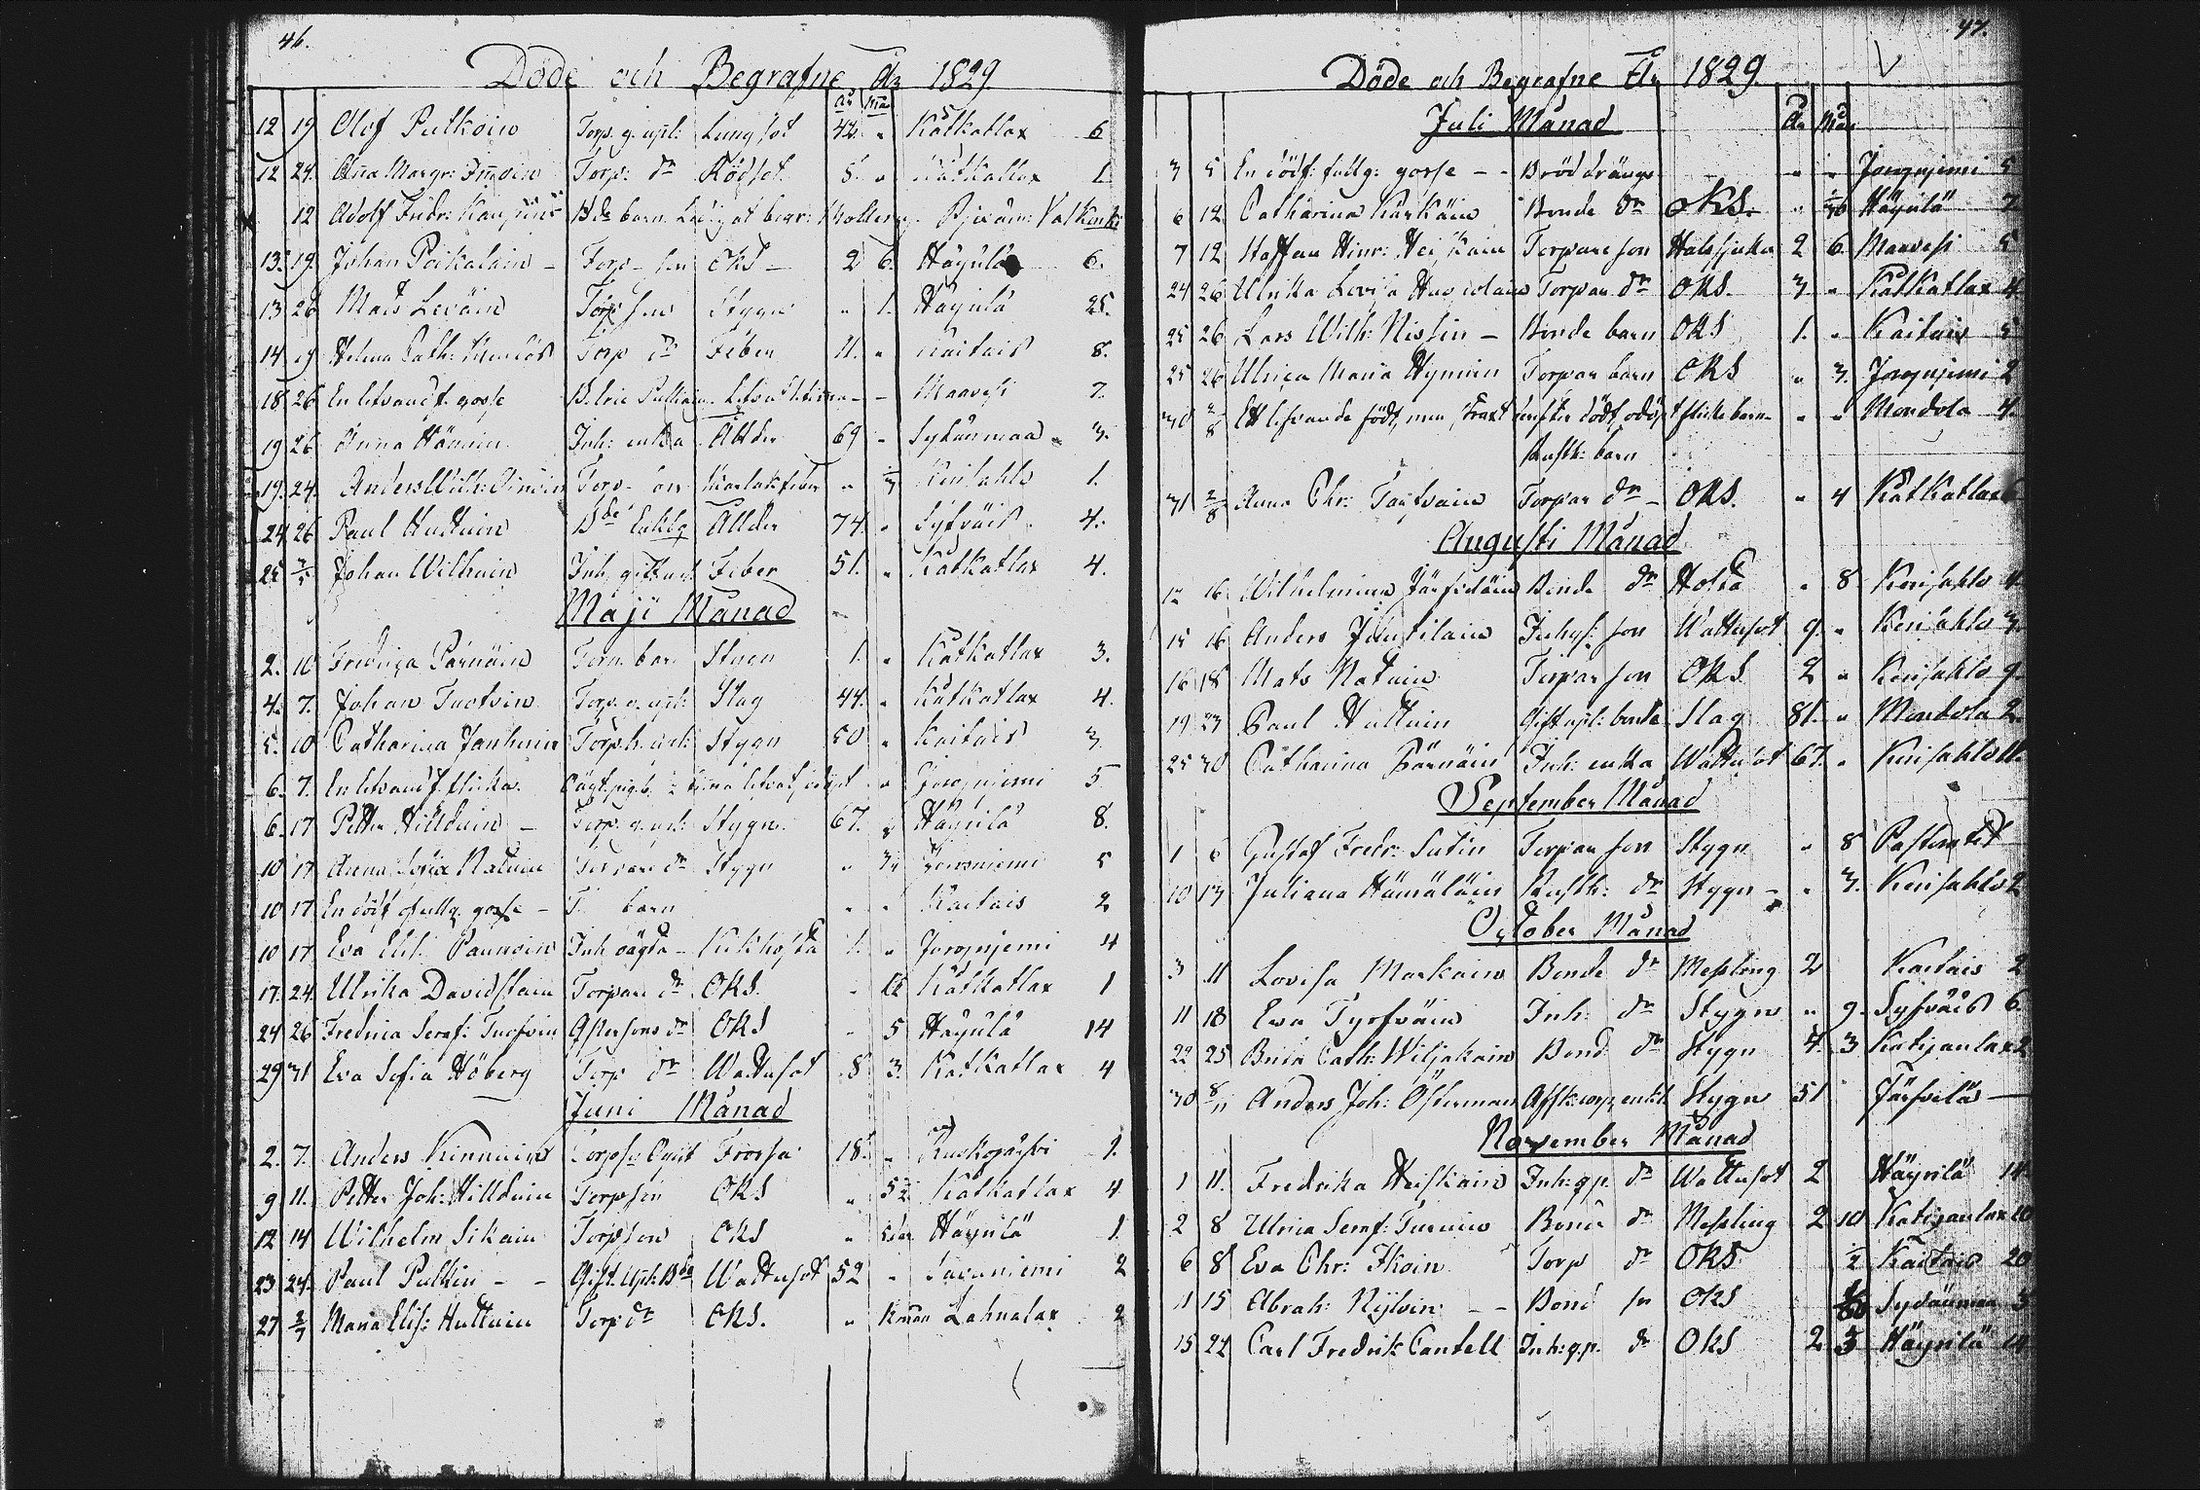 46.
Döde och Begrafne År 1829.
År Mån
12 19 Olof Pulkoin Torp. g. upl: Lungsot 42 " Kätkatlax 6
12 24. Aña Margr: Torp: dr Rödsot. 8. " Kätkatlax 1
12 Adolf Fridr: Bde barn
13. 19. Johan Poikalain – Torp – son OKS – 2 6. Häyrilä 6.
13 26 Mats Leväin Torp son Stygn " 1. Häyrilä 25.
14 19 Helena Cath: Torp dr Feber 11. " Kaitais 8.
18 26 En lefvandf. gosse – Maavesi 7.
19 26 Anna Inh: enka Ålder 69 – Sydänmaa 3.
19. 24. Anders Wilh: Torp – son " Kerisahlo 1.
24 26 Paul Huttuin Bde Enkling Ålder 74. " Syfväis 4.
25 3/5 Johan Wilhuin Inh gift upl Feber 51. " Kätkatlax 4.
Maji Månad
2. 10 Fredrica Pärnäin Torp. barn Stygn 1. " Kätkatlax 3.
4. 7. Johan Tuofvin Torp. g. upl: Slag 44. " Kätkatlax 4.
5. 10 Catharina Janhuin Torp. h. upl: Stygn 50 " Kaitais 3
6. 7. En lefvandf. flicka. " Joronjemi 5
6. 17 Petter Hillduin – Torp. g. upl: Stygn. 67. " Häyrilä 8.
10 17 Anna Sofia Natuin Torpare dr Stygn " Joronjemi 5
10 17 En dödf ofullg. gosse – T. barn " " Kaitais 2
10 17 Eva Elis. Paunoin Inh oägta – Kikhosta 1. " Joronjemi 4
17. 24. Ulrika Davidstain Torpare dr OKS. – Kätkatlax 1
24 26 Fredrica Seraf: Tuofvin Oftersons dr OKS – 5 Häyrilä 14
29 31 Eva Sofia Höberg Torp dr Wattusot 8 3. Kätkatlax 4
Juni Månad
2. 7. Anders Kinnuin Torpson Ogift Frossa 18. " Ruokojärfvi 1.
9 11. Petter Joh: Hillduin Torpson OKS " 5½ Kätkatlax 4
12 14 Wilhelm Sikain Torpson OKS " Häyrilä 1
23 24. Paul Pulkin – – Gift. Upl. Bde Wattusot 52 " Savuniemi 2
27 2/7 Maria Elis: Huttuin Torp dr OKS. " Lahnalax 2
47.
Döde och Begrafne År 1829.
Juli Månad
År Mån
3 5 En dödf: fullg: gosse – – Bröd drängs " " Joronjemi 5
6 12. Catharina Karkäin Bonde dr OKS. " Häyrilä 2
7 12 Staffan Hinr: Heiskain Torpare son Halssjuka 2 6. Maavesi 5
24 26 Ulrika Lovisa Torpar dr OKS. 3 " Kätkatlax 4
25 26 Lars Wilh: Nissin – Bonde barn OKS 1. " Kaitais 5
25 26 Ulrica Maria Hynnin Torpar barn OKS " 3. Joronjemi 2
30 2/8 Ett lefvande född, men strax derefter dödt, odöpt flicke barn – " " Mondola 4
Rustk: barn
31 2/8 Anna Chr: Tarfvain Torpar dr – OKS. " 4 Kätkatlax 6
Augusti Månad
12 16. Wilhelmina Järfveläin Bonde dr Hosta " 8 Kerisahlo 4
15 16 Anders Juutilain Inhys: son Wattusot 9. " Kerisahlo 3.
16 18 Mats Natuin Torpar son OKS. 2 " Kerisahlo 9.
19 23 Paul Huttuin Gift upl: bonde Slag 81. " Mondola 2.
25 30 Catharina Pärnäin Inh: enka Wattusot 67. " Kerisahlo 11.
September Månad
1 6 Gustaf Fredr: Sutin Torpar son Stygn " 8 Pastoratet
10 13 Juliana Hämäläin Rustk: dr Stygn – " 3. Kerisahlo 2
October Månad
3 11 Lovisa Markain Bonde dr Messling 2 Kaitais 2
11 18 Eva Tyrfväin Inh: dr Stygn " 9. Syfväis 6.
22 25 Brita Cath: Wiljakain Bond dr Stygn 4. 3 Kotijanlax 2
30 8/11 Anders Joh: Österman Afsk: corp, enkl: Stygn 51 Järfvelä –
November Månad
1 11. Fredrika Heiskain Inh: g.p. dr Wattusot 2 Häyrilä 14
2 8 Ulrica Seraf: Turuin Bond dr Messling 2 10 Kotijanlax 10
6 8 Eva Chr: Ikoin Torp dr OKS. ½ Kaitais 20
11 15 Abrah: Nylvin – – Bond sn OKS Sydänmaa 3
15 22 Carl Fredrik Cantell Inh: g.p. dr OKS 2 3 Häyrilä 14